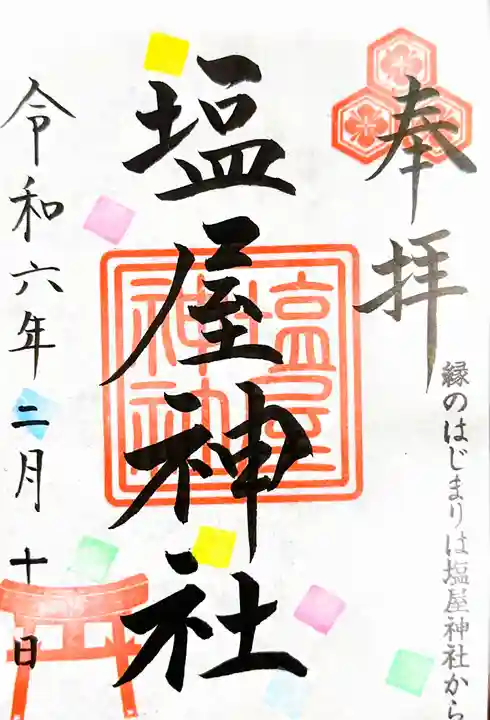 奉拝
縁のはじまりは塩屋神社から
塩屋神社
塩屋
神社
令和六年二月十日